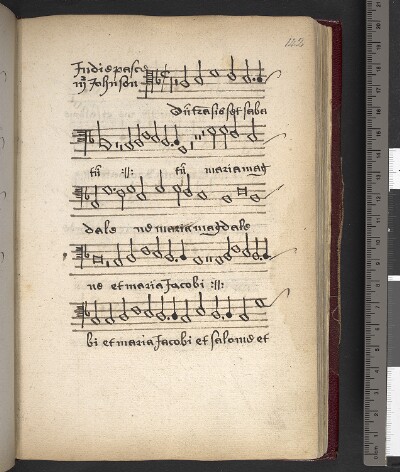 122
In die pasce
iij Johnson
Dū trāsisset saba
tū :||: tū maria mag
dale ne maria magdale
ne et maria Jacobi :||:
bi et maria Jacobi et salome et